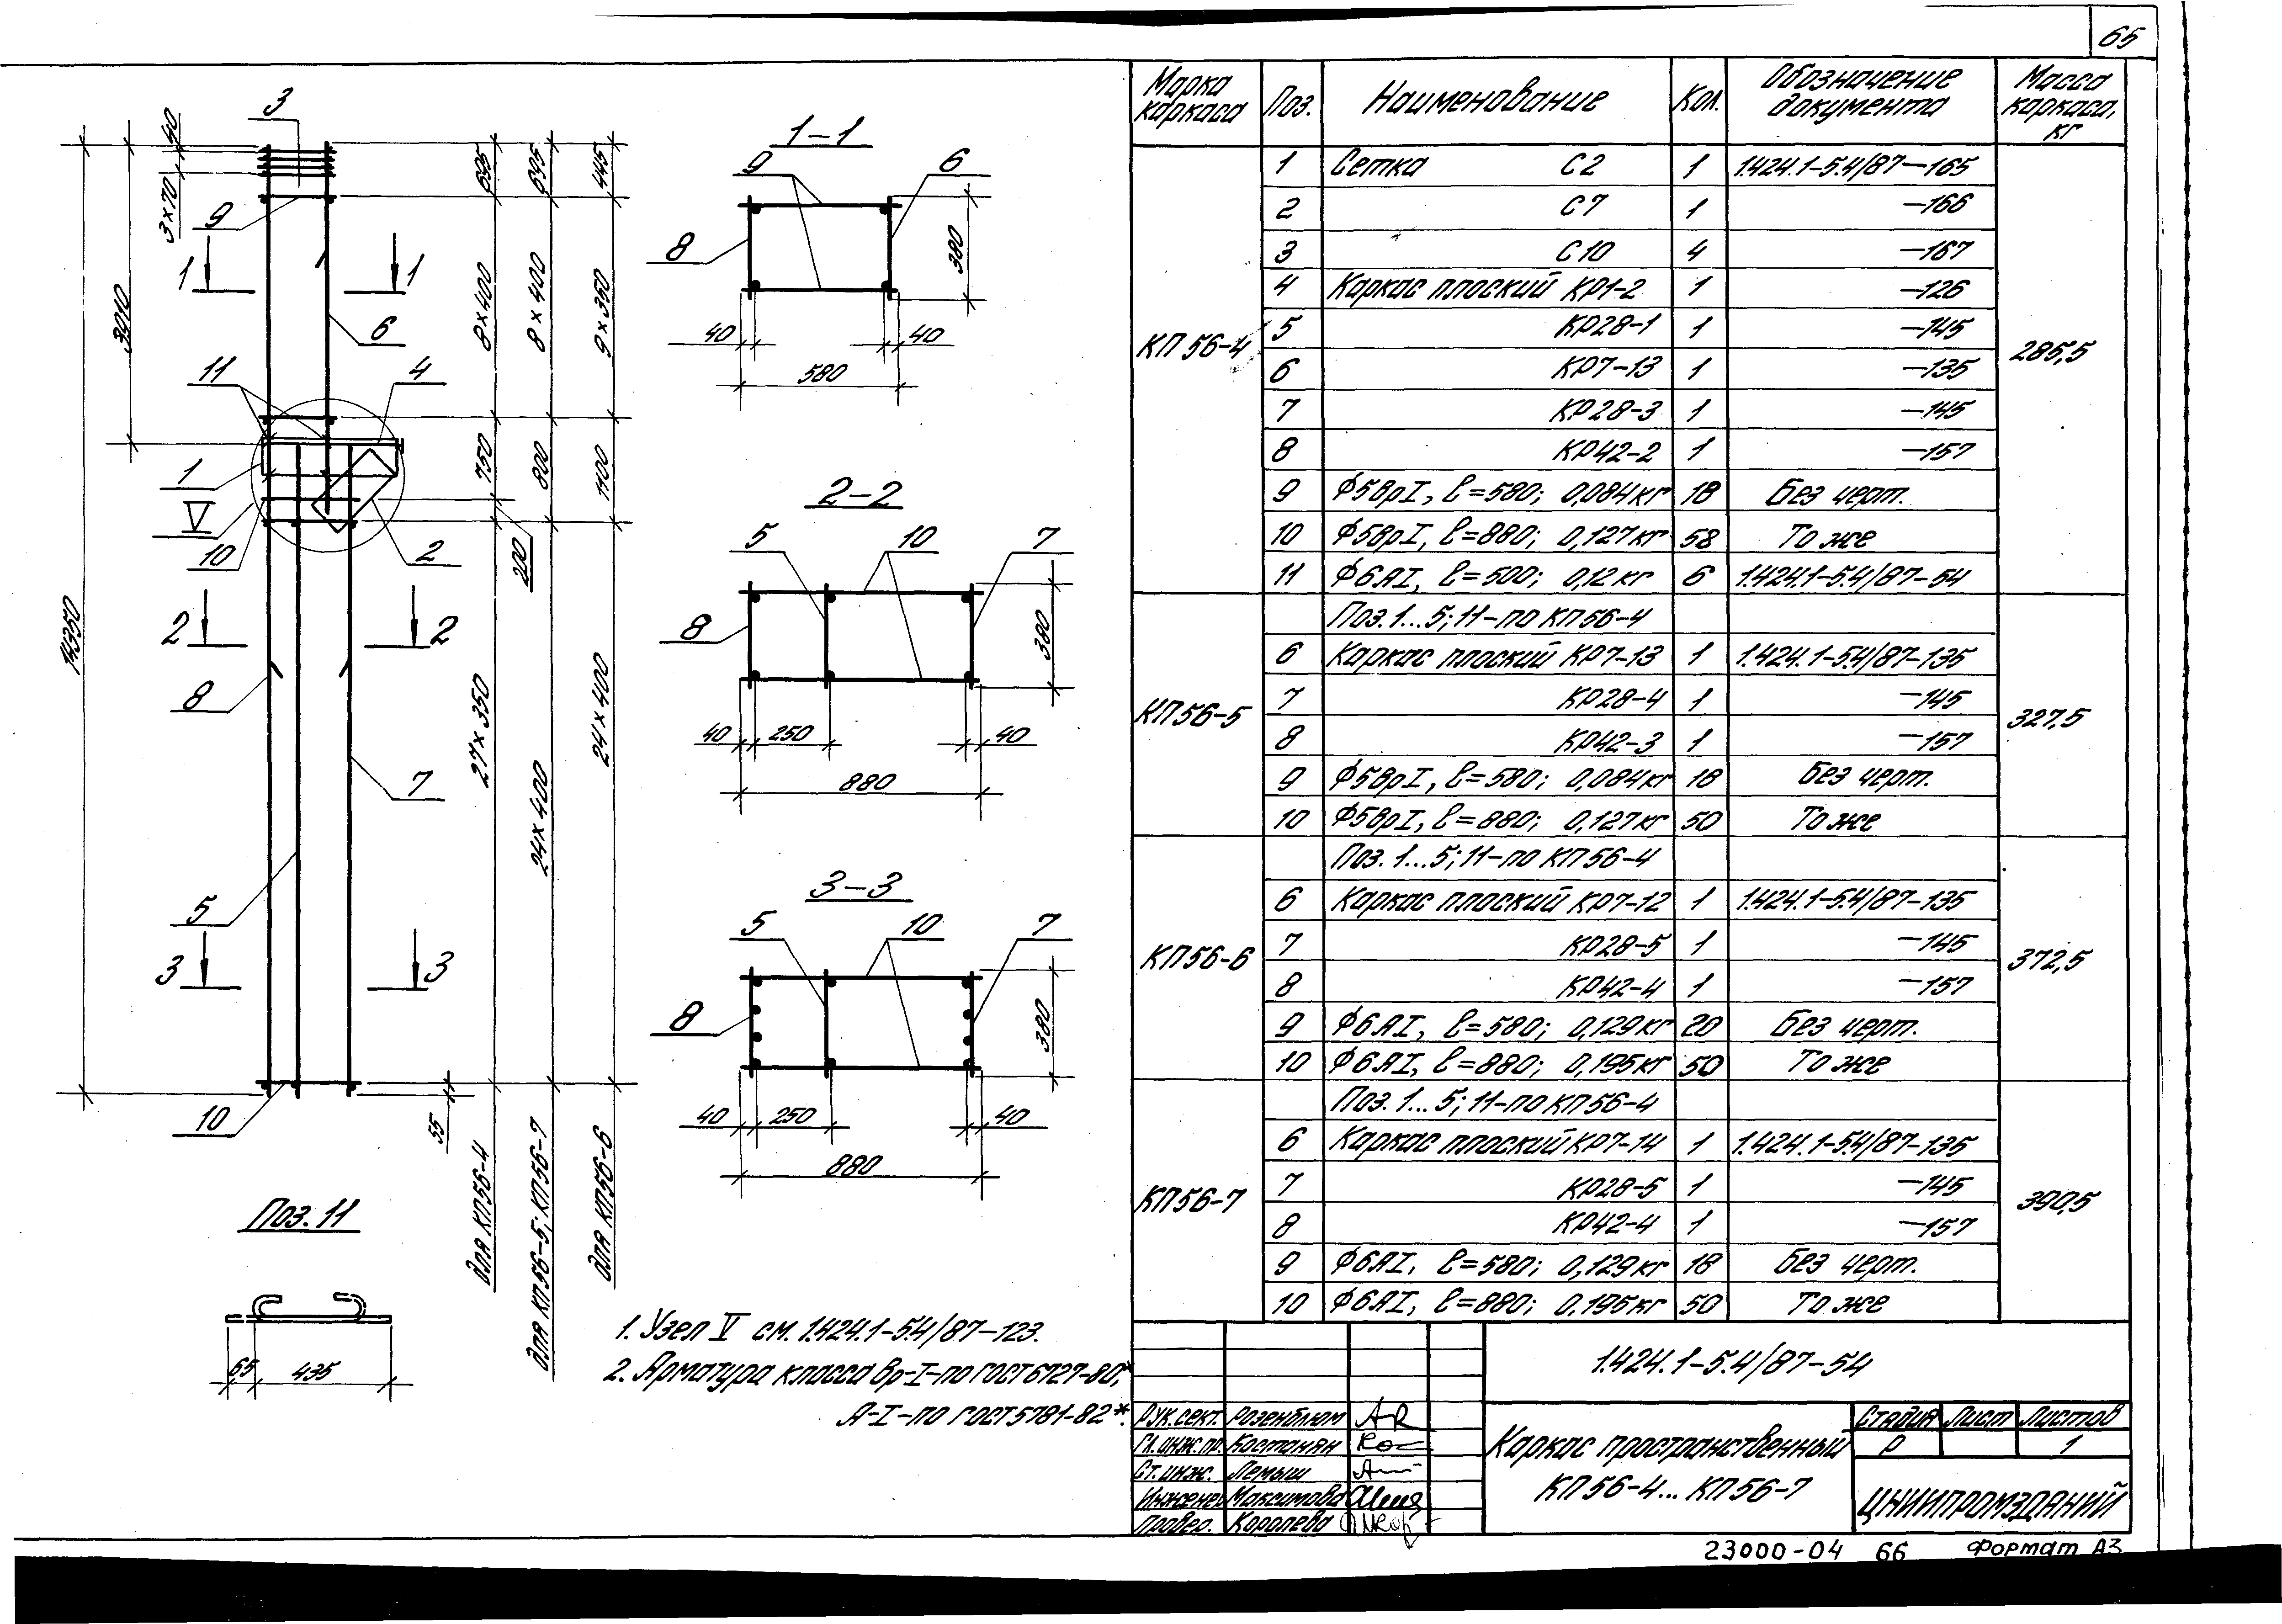 65
Марка каркаса | Поз. | Наименование | Кол. | Обозначение документа | Масса каркаса, кг
КП 56-4 | 1 | Сетка С2 | 1 | 1.424.1-5.4/87-165 | 285,5
2 | С7 | 1 | -166
3 | С10 | 4 | -167
4 | Каркас плоский КР1-2 | 1 | -126
5 | КР28-1 | 1 | -145
6 | КР7-13 | 1 | -135
7 | КР28-3 | 1 | -145
8 | КР42-2 | 1 | -157
9 | Ф5ВрI, ℓ=580; 0,084кг | 18 | Без черт.
10 | Ф5ВрI, ℓ=880; 0,127кг | 58 | То же
11 | Ф6АI, ℓ=500; 0,12кг | 6 | 1.424.1-5.4/87-54
Поз. 1...5; 11-по КП56-4
КП56-5 | 6 | Каркас плоский КР7-13 | 1 | 1.424.1-5.4/87-135 | 327,5
7 | КР28-4 | 1 | -145
8 | КР42-3 | 1 | -157
9 | Ф5ВрI, ℓ=580; 0,084кг | 18 | Без черт.
10 | Ф5ВрI, ℓ=880; 0,127кг | 50 | То же
Поз. 1...5; 11-по КП56-4
КП56-6 | 6 | Каркас плоский КР7-12 | 1 | 1.424.1-5.4/87-135 | 372,5
7 | КР28-5 | 1 | -145
8 | КР42-4 | 1 | -157
9 | Ф6АI, ℓ=580; 0,129кг | 20 | Без черт.
10 | Ф6АI, ℓ=880; 0,195кг | 50 | То же
Поз. 1...5; 11-по КП56-4
КП56-7 | 6 | Каркас плоский КР7-14 | 1 | 1.424.1-5.4/87-135 | 390,5
7 | КР28-5 | 1 | -145
8 | КР42-4 | 1 | -157
9 | Ф6АI, ℓ=580; 0,129кг | 18 | Без черт.
10 | Ф6АI, ℓ=880; 0,195кг | 50 | То же
3
40
3×70
9
1 1
3910
6
11
4
1
V
10
2
2 2
8
7
14350
5
3 3
10
55
695
8×400
750
200
27×350
для КП56-4
695
8×400
800
24×400
для КП56-5; КП56-7
445
9×350
1100
24×400
для КП56-6
1-1
9
6
8
380
40
40
580
2-2
5
10
7
8
380
40
250
40
880
3-3
5
10
7
8
380
40
250
40
880
Поз. 11
65
435
1. Узел V см. 1.424.1-5.4/87-123.
2. Арматура класса Вр-I-по ГОСТ 6727-80,*
А-I-по ГОСТ 5781-82*.
1.424.1-5.4/87-54
Рук. сект. Розенблюм
Гл. инж. пр. Костанян
Ст. инж. Лемыш
Инженер Максимова
Провер. Королева
Каркас пространственный
КП56-4...КП56-7
Стадия Лист Листов
Р 1
ЦНИИПРОМЗДАНИЙ
23000-04 66 Формат А3